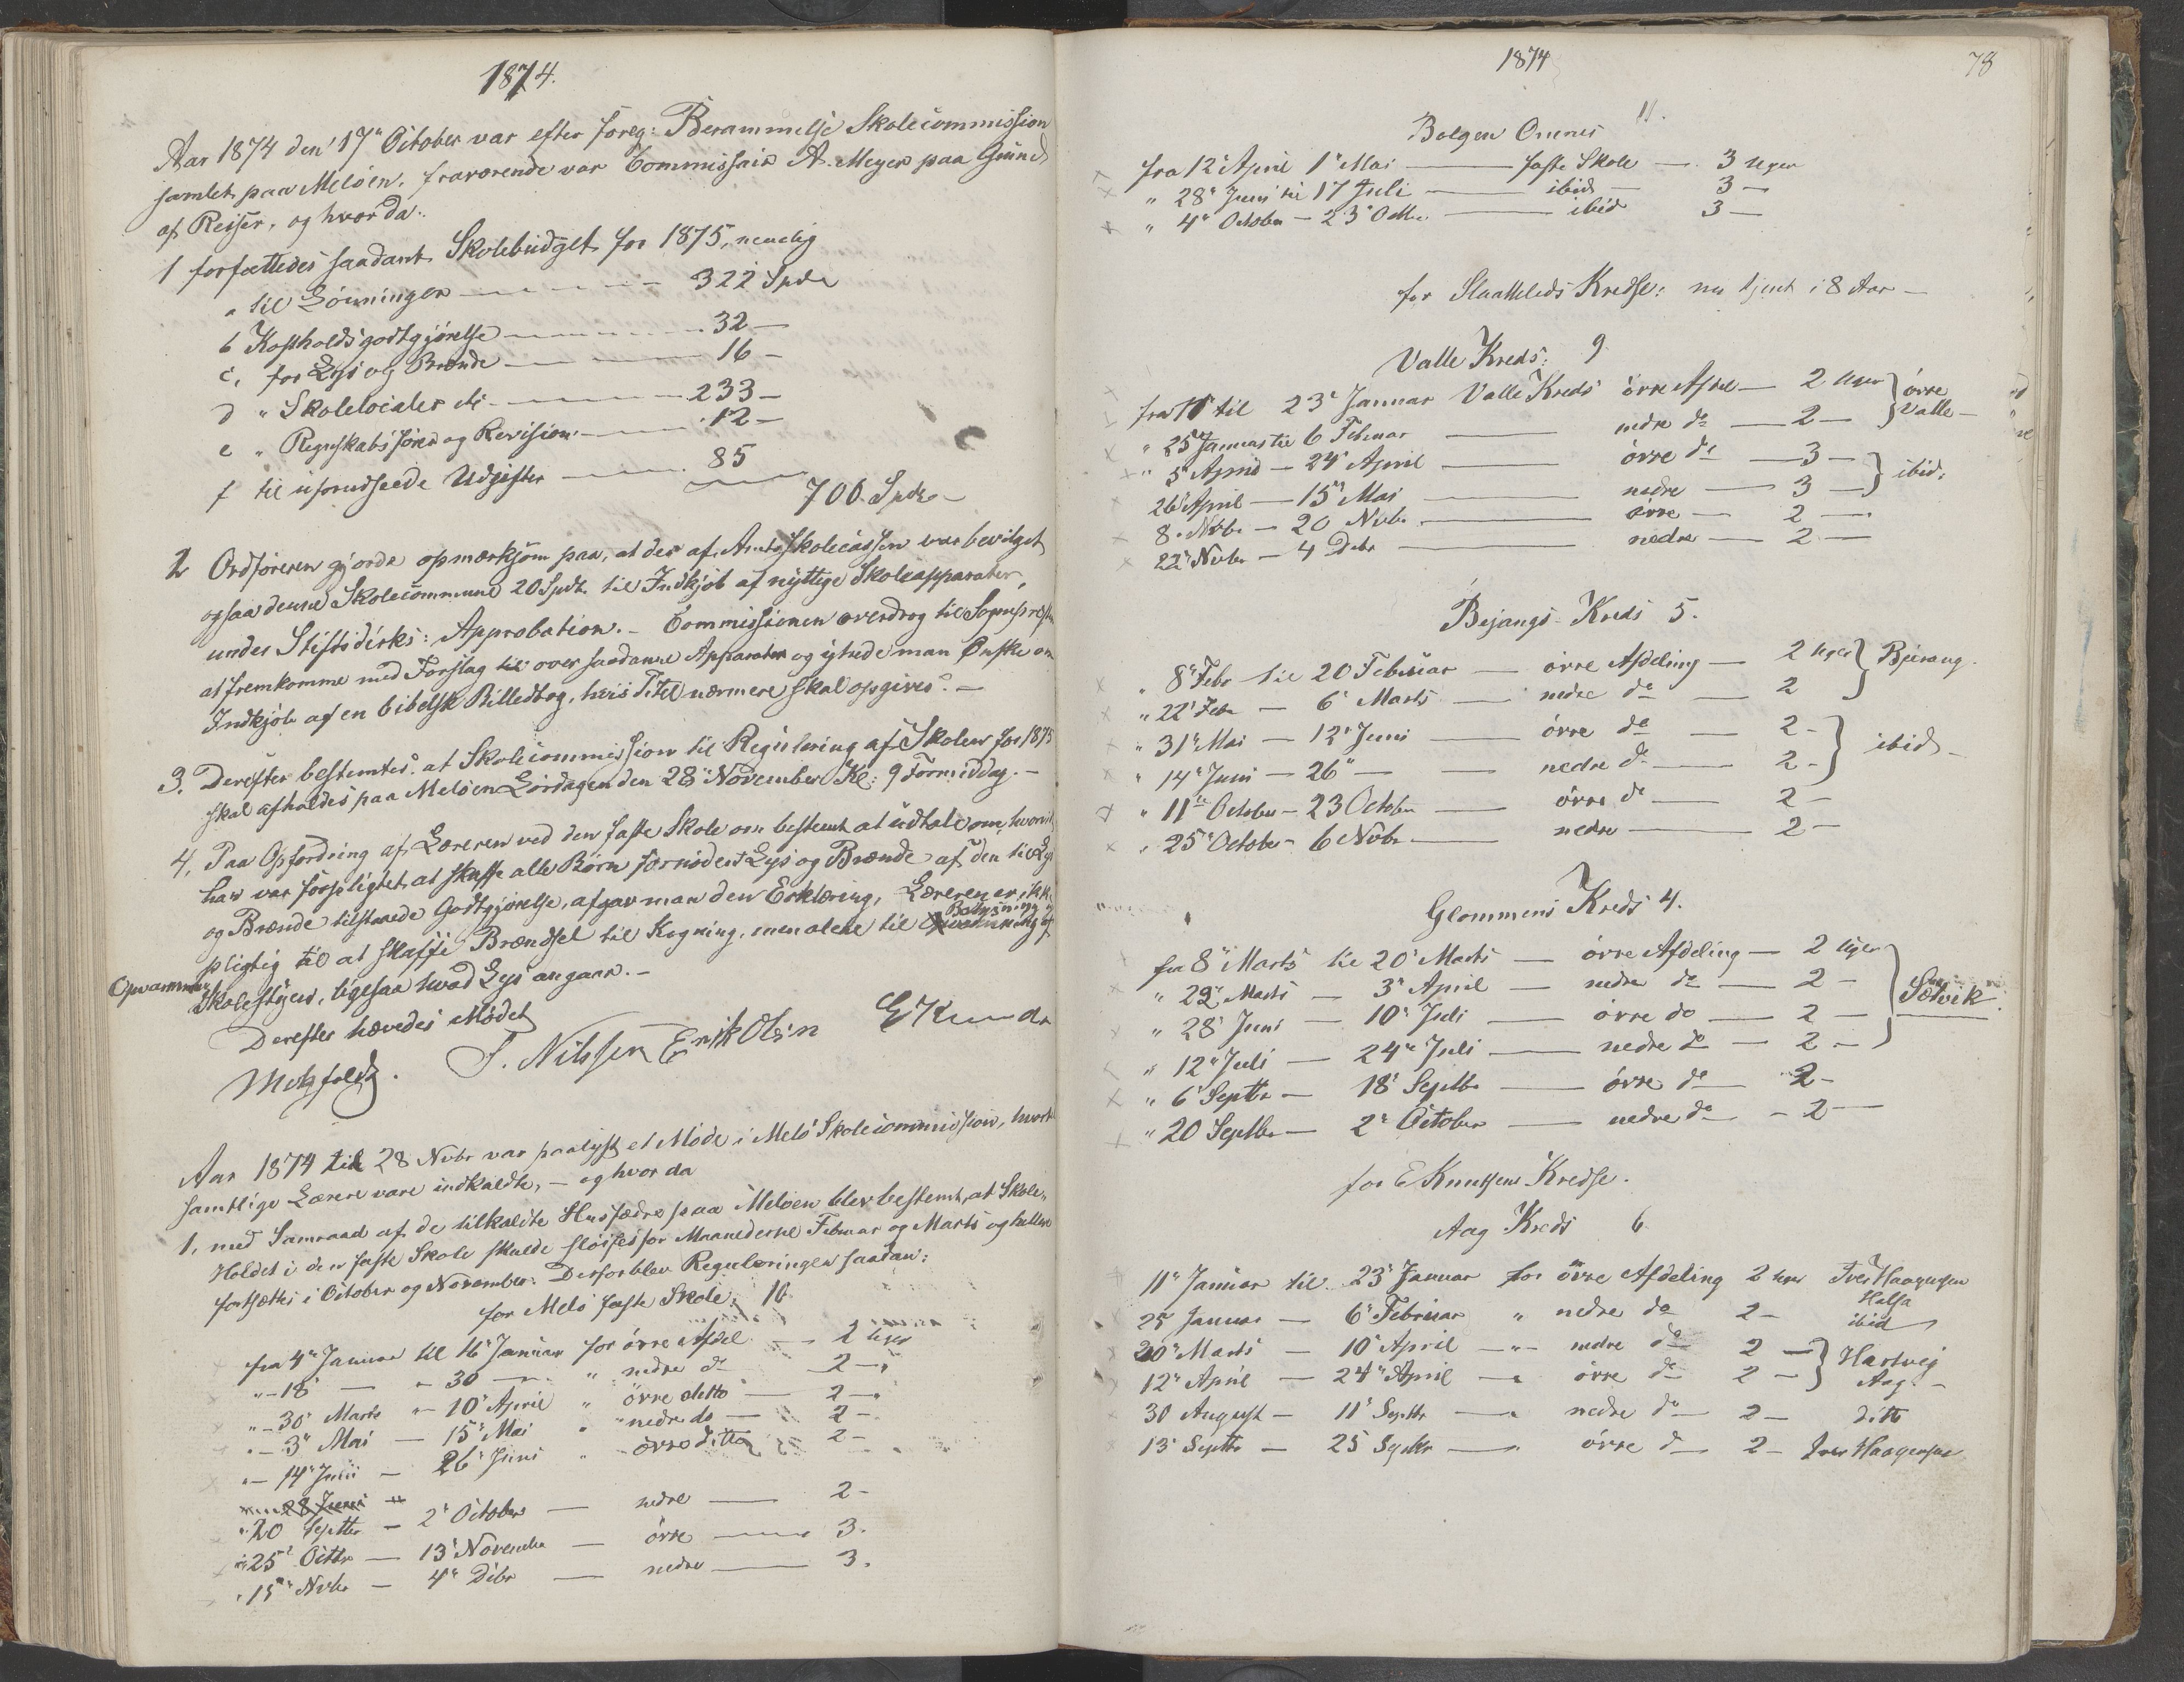 1874.
Aar 1874 den 17de October var efter foreg: Berammelse Skolecommission
samlet paa Meløen, fraværende var Commissair A. Meyer paa Grund
af Reiser, og hvor da:
1 forfattedes saadant Skolebudget for 1875, nemlig
a til Lønninger 322 Spdr
b Kostholdsgodtgjørelse 32 —
c, for Lys og Brænde 16 —
d " Skolelocaler 233 —
e " Regnskabsførs og Revision 12 —
f til uforudseede Udgifter 85
700 Spdr —
2 Ordføreren gjorde opmærksom paa, at der af Amtsskolecassen var bevilget
ogsaa denne Skolecommune 20 Spdr. til Indkjøb af nyttige Skoleapparater,
under Stiftsdirks: Approbation. — Commissionen overdrog til Sognepresten
at fremkomme med Forslag til over saadanne Apparater og ytrede man Ønske om
Indkjøb af en bibelsk Billedbog, hvis Titel nærmere skal opgives. —
3. Derefter bestemtes at Skolecommission til Regulering af Skolen for 1875
skal afholdes paa Meløen Lørdagen den 28de November Kl: 9 Formiddag. —
4, Paa Opfordring af Læreren ved den faste Skole om bestemt at udtale om, hvorvidt
han var forpligtet at skaffe alle Børn fornødent Lys og Brænde af den til Lys
og Brænde tilstaaede Godtgjørelse, afgav man den Erklæring, Læreren er ikke
pligtig til at skaffe Brændsel til Kogning, men alene til Belysning og
Opvarmning af
Skolestuen, ligesaa hvad Lys angaar. —
Derefter hævedes Mødet
Motzfeldt. S. Nilssen Erik Olsen E Knuds
Aar 1874 til 28 Nvbr var paalyst et Møde i Melø Skolecommission, hvortil
samtlige Lærere vare indkaldte, — og hvor da
1, med Samraad af de tilkaldte Husfædre paa Meløen blev bestemt, at Skole-
Holdet i den faste Skole skulde sløifes for Maanederne Februar og Marts og hellere
fortsættes i October og November. Derfor blev Reguleringen saadan:
for Melø faste Skole, 16
fra 4de Januar til 16de Januar for øvre Afdel — 2 Uger
" — 18 — " — 30 — " nedre do 2 —
" — 30' Marts " — 10' April " øvre ditto — 2 —
" — 3' Mai — 15' Mai " nedre do — 2 —
" — 14' Juni — 26' Juni " øvre ditto 2 —
28 Juni
" 20 Septbr — 2' October — nedre — 2 —
" 25' Octbr — 13' November — øvre — 3.
" 15' Nvbr — 4' Dcbr — nedre — 3.
1874
78
Bolgen Ornnes 11.
fra 12' April 1' Mai — faste Skole — 3 Uger
" 28' Juni til 17 Juli — ibid — 3 —
" 4' October — 23' Octbr — ibid 3 —
for Slaatteleds Kredse: nu tjent i 8 Aar —
Valle Kreds: 9
fra 11' til 23' Januar Valle Kreds øvre Afdel — 2 Uger øvre
Valle —
" 25' Januar til 6 Februar — nedre do — 2 —
" 5' April — 24' April — øvre do — 3 — ibid:
26' April — 15' Mai — nedre — 3 —
8. Nvbr — 20 Nvbr — øvre — 2 —
22' Nvbr — 4 Dcbr — nedre — 2 —
Bejangs Kreds 5.
" 8' Febr til 20 Februar — øvre Afdeling — 2 Uger Bjerang.
" 22' Febr — 6' Marts — nedre do — 2
" 31' Mai — 12' Juni — øvre do — 2 — ibid —
" 14' Juni — 26' — nedre do — 2 —
" 11' October — 23 October — øvre do — 2 —
" 25' October — 6 Nvbr — nedre — 2 —
Glommens Kreds 4.
fra 8' Marts til 20' Marts — øvre Afdeling — 2 Uger
" 22' Marts — 3' April — nedre do — 2 — Sætvik
" 28' Juni — 10' Juli — øvre do — 2 —
" 12' Juli — 24' Juli — nedre do — 2 —
" 6' Septbr — 18' Septbr — øvre do — 2 —
" 20 Septbr — 2' October — nedre do — 2 —
for E Knutsens Kredse.
Aag Kreds 6
11' Januar til 23' Januar for øvre Afdeling 2 Uger Iver Haagensen
Halsa
25 Januar — 6' Februar " nedre do 2 — ibid
20' Marts — 10' April — " — nedre do 2 — Hartvig
12' April — 24' April — øvre do 2 — Aag —
30 August — 11' Septbr — nedre do — 2 — ditto
13' Septbr — 25 Septbr — øvre do — 2 — Iver Haagensen